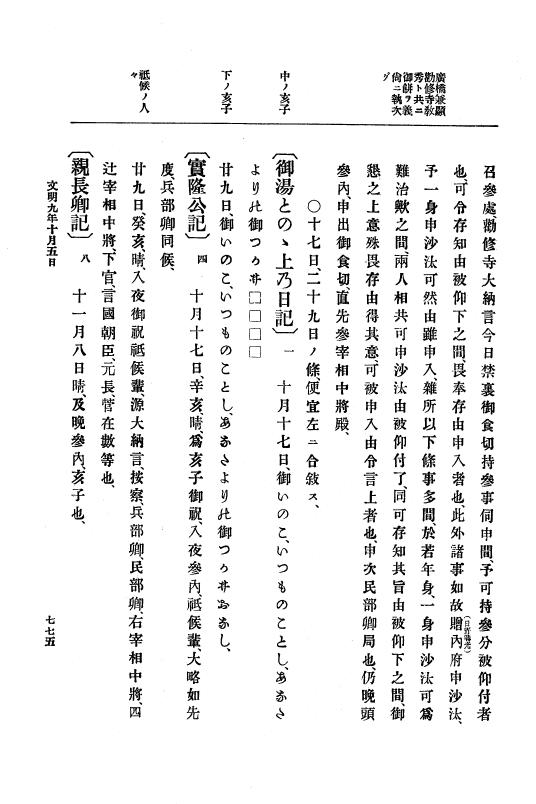 廣橋兼顯
勸修寺敎
秀ト共ニ
御餅ヲ義
尙ニ執次
グ
中ノ亥子
下ノ亥子
祗候ノ人
々
召參處、勸修寺大納言今日禁裏御食切持參事伺申間、予可持參分被仰付者
也、可令存知由被仰下之間、畏奉存由申入者也、此外諸事如故贈內府申沙汰、
(日野勝光)
予一身申沙汰可然由雖申入、雜所以下條事多間、於若年身、一身申沙汰可爲
難治歟之間、兩人相共可申沙汰由被仰付了、同可存知其旨由被仰下之間、御
懇之上意殊畏存由得其意可被申入由令言上者也、申次民部卿局也、仍晚頭
參內、申出御食切、直先參宰相中將殿、
○十七日、二十九日ノ條便宜左ニ合敘ス、
〔御湯とのゝ上乃日記〕一 十月十七日、御いのこ、いつものことし、あかさ
より此御つゝみ□□□□
廿九日御いのこ、いつものことし、あかさより此御つゝみおなし、
〔實隆公記〕四 十月十七日、辛亥、晴、爲亥子御祝、入夜參內、祗候輩、大略如先
度、兵部卿同候、
廿九日、癸亥、晴、入夜御祝祗候輩、源大納言、按察、兵部卿、民部卿、右宰相中將、四
辻宰相中將、下官、言國朝臣、元長、菅在數等也、
〔親長卿記〕八 十一月八日晴、及晚參內、亥子也、
文明九年十月五日
七七五